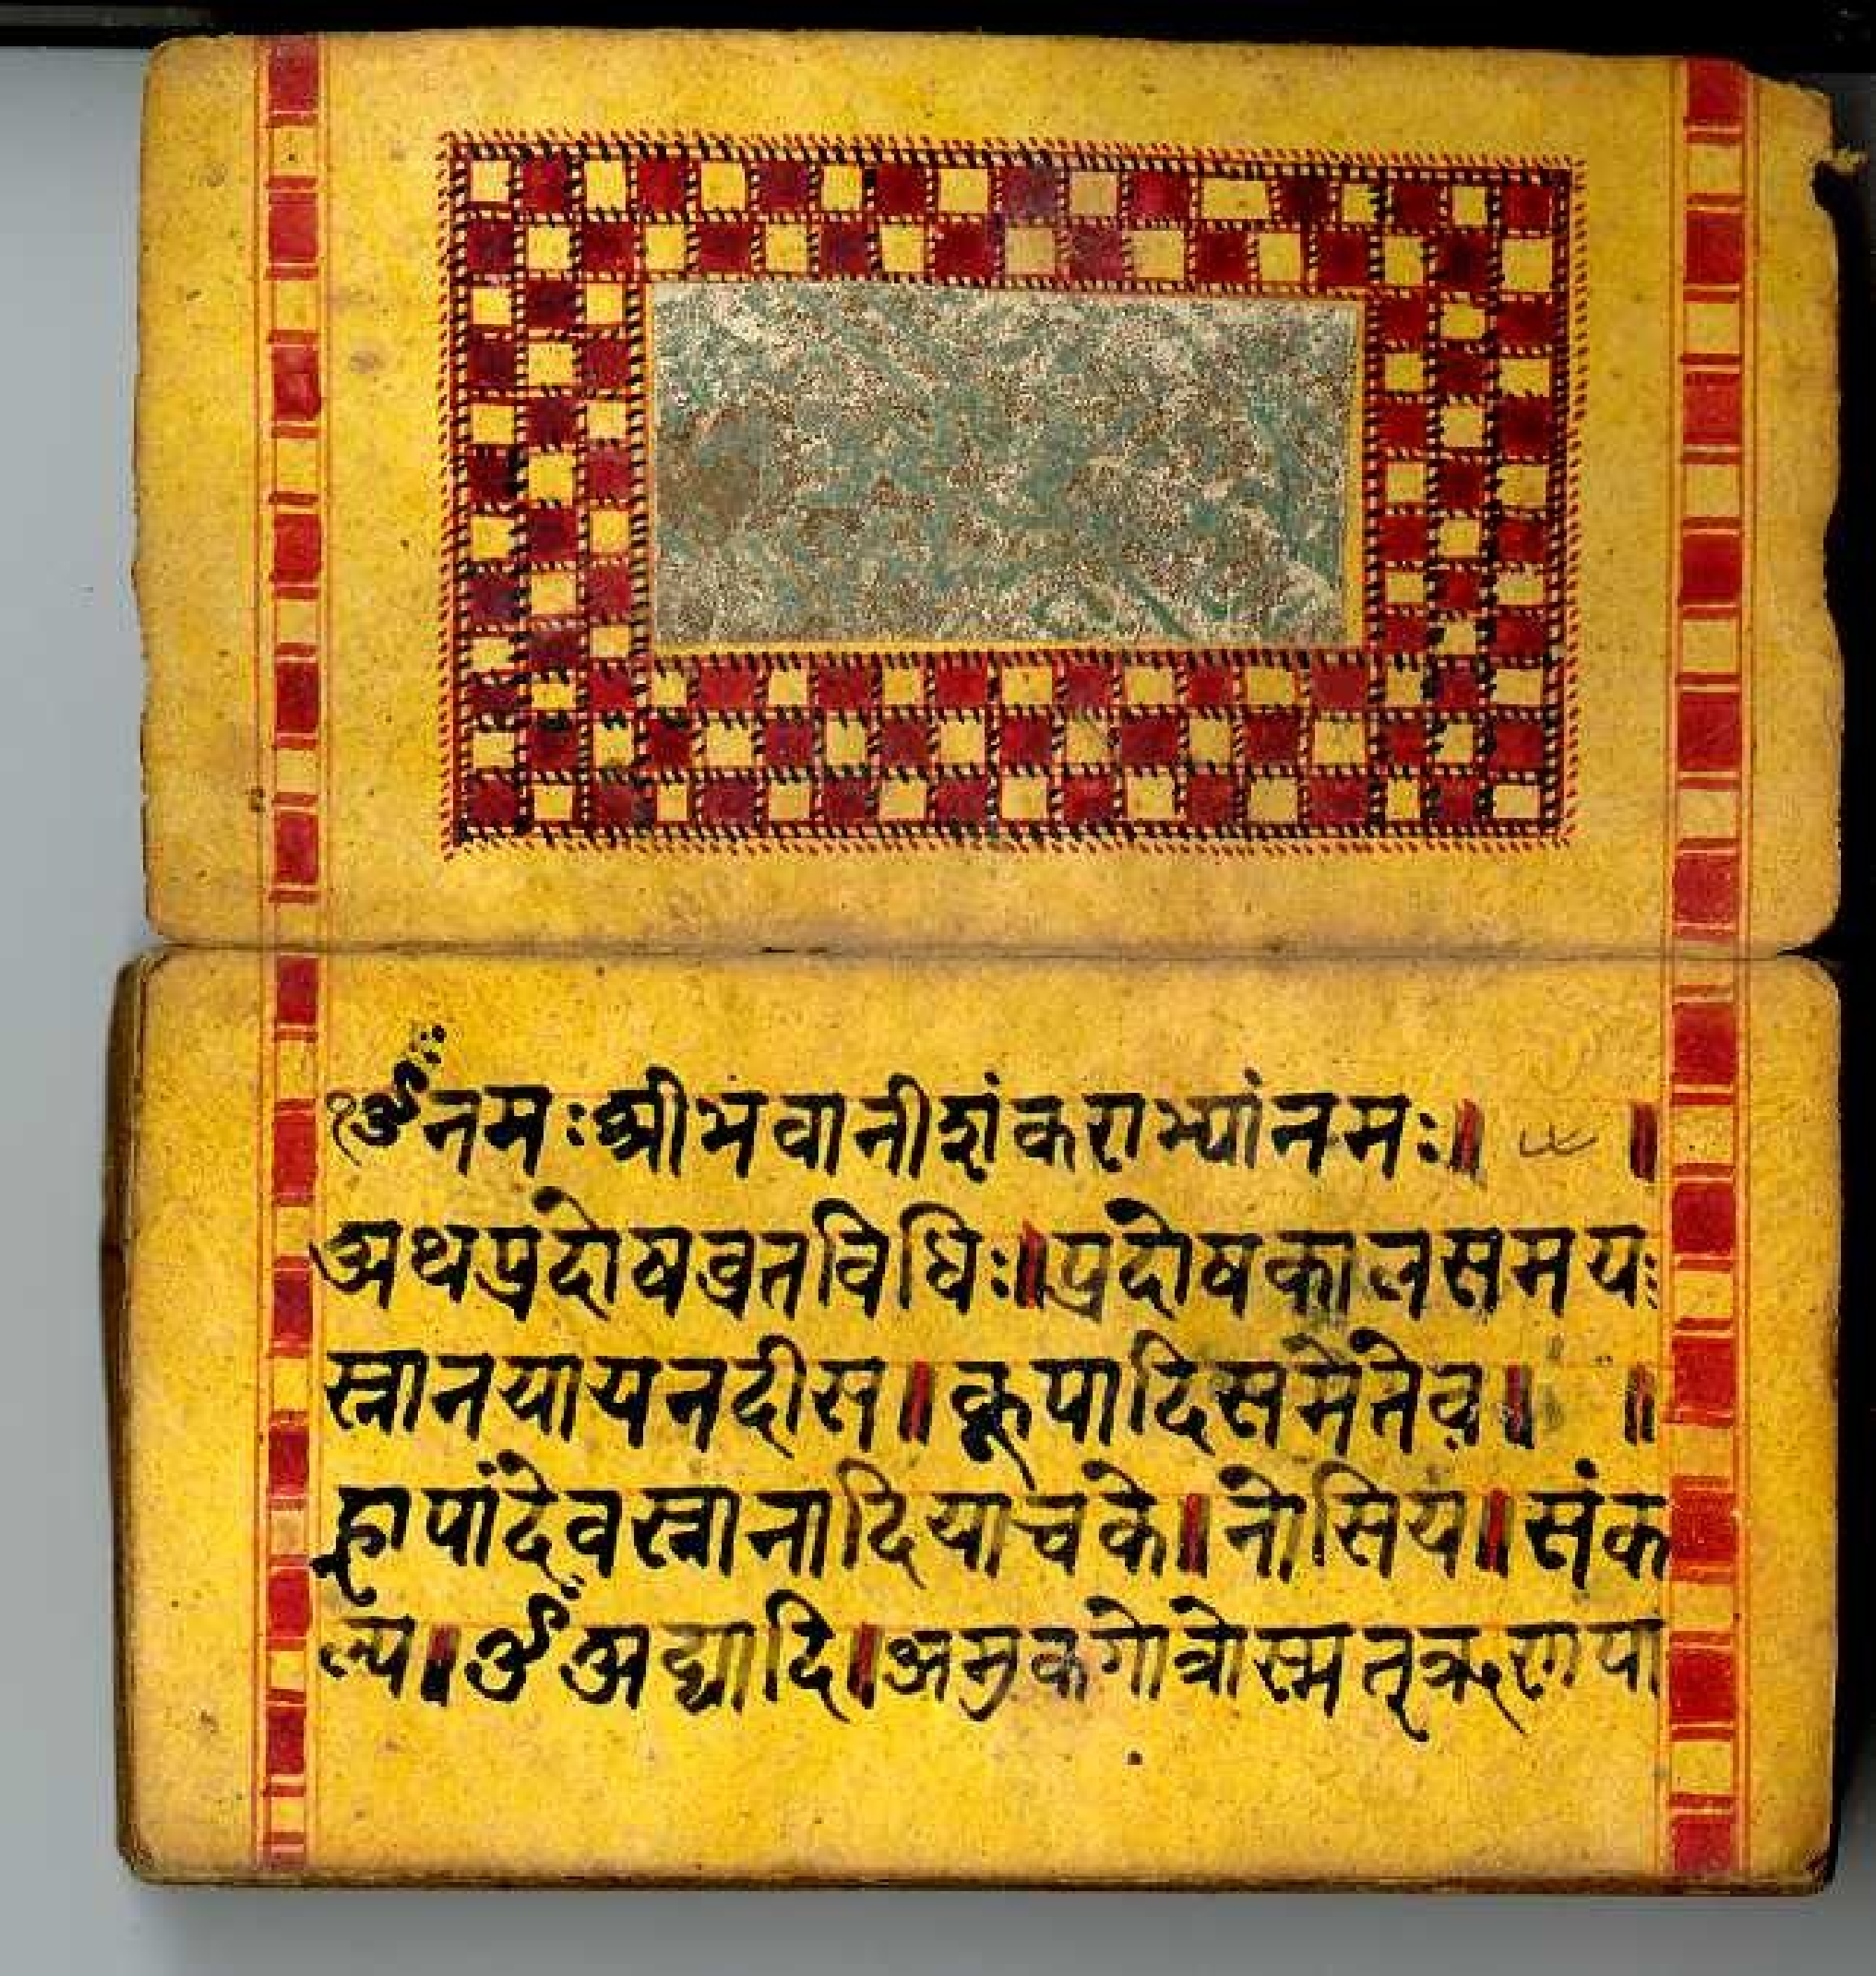 ॐनमःश्रीभवानीशंकराभ्यांनमः॥ ॥
अथप्रदोषव्रतविधिः॥प्रदोषकालसमयः
स्नानयायनदीस॥कूपादिसमेतेव॥ ॥
ह्नापांदेवस्नानादियाचके॥नोसिय॥संक
ल्प॥ॐअद्यादि॥अमुकगोत्रोस्मतृऋणपा